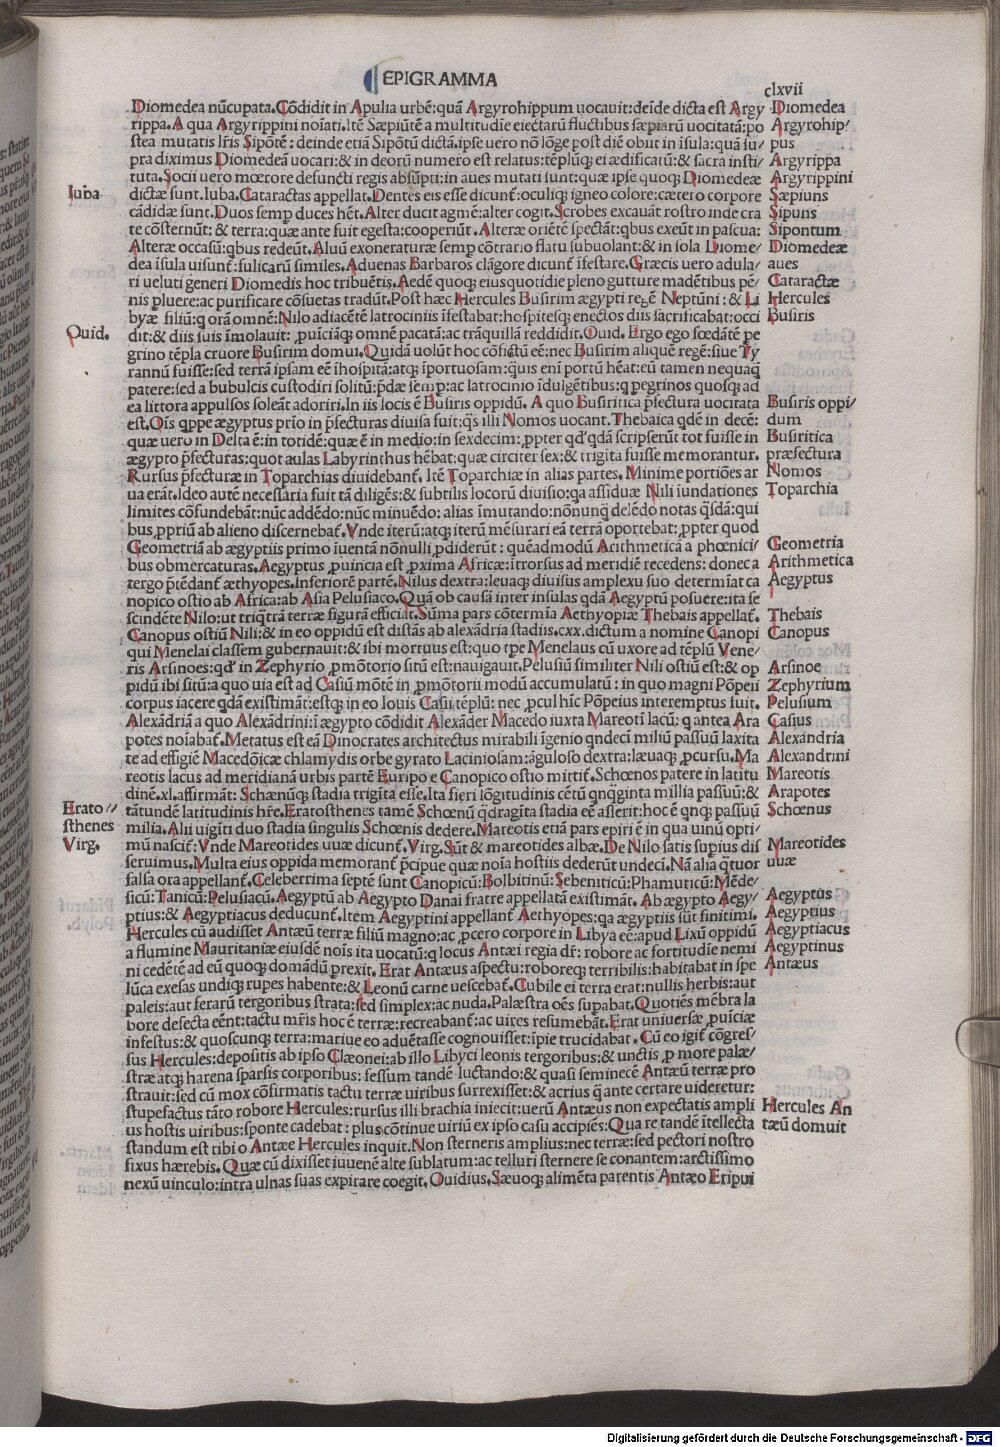 EPIGRAMMA
clxvii
Diomedea nūcupata. Cōdidit in Apulia urbē: quā Argyrohippum uocauit: deīde dicta est Argy
rippa. A qua Argyrippini noīati. Itē Sæpiūtē a multitudīe eiectarū fluctibus sæpiarū uocitatā: po
stea mutatis lr̄is Sipōtē: deinde etiā Sipōtū dictā. ipse uero nō lōge post diē obiit in īsula: quā su/
pra diximus Diomedeā uocari: & in deorū numero est relatus: tēplūq; ei ædificatū: & sacra insti/
tuta. Socii uero mœrore defuncti regis absūpti: in aues mutati sunt: quæ ipse quoq; Diomedeæ
dictæ sunt. Iuba. Cataractas appellat. Dentes eis esse dicunt: oculiq; igneo colore: cætero corpore
cādidæ sunt. Duos semp duces hēt. Alter ducit agmē: alter cogit. Scrobes excauāt rostro inde cra
te cōsternūt: & terra: quæ ante fuit egesta: cooperiūt. Alteræ oriētē spectāt: qbus exeūt in pascua:
Alteræ occasū: qbus redeūt. Aluū exoneraturæ semp cōtrario flatu subuolant: & in sola Diome/
dea īsula uisunt: fulicarū similes. Aduenas Barbaros clāgore dicunt īfestare. Græcis uero adula/
ri ueluti generi Diomedis hoc tribuētis. Aedē quoq; eiusquotidie pleno gutture madētibus pē/
nis pluere: ac purificare cōsuetas tradūt. Post hæc Hercules Busirim ægypti regē Neptūni: & Li
byæ filiū: q orā omnē: Nilo adiacētē latrociniis īfestabat: hospitesq; enectos diis sacrificabat: occi
dit: & diis suis īmolauit: ꝓuīciāq; omnē pacatā: ac trāquillā reddidit. Ouid. Ergo ego fœdātē pe
grino tēpla cruore Busirim domui. Quidā uolūt hoc cōfictū eē: nec Busirim aliquē regē: siue Ty
rannū fuisse: sed terrā ipsam eē īhospitā: atq; īportuosam: q̄uis enī portū hēat: eū tamen nequaq̄
patere: sed a bubulcis custodiri solitū: p̄dæ semp: ac latrocinio īdulgētibus: q pegrinos quosq; ad
ea littora appulsos soleāt adoriri. In iis locis ē Busiris oppidū. A quo Busiritica p̄fectura uocitata
est. Oīs qppe ægyptus prīo in p̄fecturas diuisa fuit: q̄s illi Nomos uocant. Thebaica qdē in decē:
quæ uero in Delta ē: in totidē: quæ ē in medio: in sexdecim: ꝓpter qd' qdā scripserūt tot fuisse in
ægypto p̄fecturas: quot aulas Labyrinthus hēbat: quæ circiter sex: & trigīta fuisse memorantur.
Rursus p̄fecturæ in Toparchias diuidebant. Itē Toparchiæ in alias partes. Minime portiões ar
ua erāt. Ideo autē necessaria fuit tā diligēs: & subtilis locorū diuisio: qa assiduæ Nili iundationes
limites cōfundebāt: nūc addēdo: nūc minuēdo: alias īmutando: nōnunq̄ delēdo notas q̄sdā: qui
bus ꝓpriū ab alieno discernebat. Vnde iterū: atq; iterū mēsurari eā terrā oportebat: ꝓpter quod
Geometriā ab ægyptiis primo iuentā nōnulli ꝓdiderūt: quēadmodū Arithmetica a phœnici/
bus obmercaturas. Aegyptus ꝓuincia est ꝓxima Africæ: ītrorsus ad meridiē recedens: donec a
tergo p̄tēdant æthyopes. Inferiorē partē. Nilus dextra: leuaq; diuisus amplexu suo determīat ca
nopico ostio ab Africa: ab Asia Pelusiaco. Quā ob causā inter insulas qdā Aegyptū posuere: ita se
scindēte Nilo: ut triq̄trā terræ figurā efficiat. Sūma pars cōtermīa Aethyopiæ Thebais appellat.
Canopus ostiū Nili: & in eo oppidū est distās ab alexādria stadiis. cxx. dictum a nomine Canopi
qui Menelai classem gubernauit: & ibi mortuus est: quo tpe Menelaus cū uxore ad tēplū Vene/
ris Arsinoes: qd' in Zephyrio ꝓmōtorio sitū est: nauigauit. Pelusiū similiter Nili ostiū est: & op
pidū ibi sitū: a quo uia est ad Casiū mōtē in ꝓmōtorii modū accumulatū: in quo magni Pōpeii
corpus iacere qdā existimāt: estq; in eo Iouis Casii tēplū: nec ꝓcul hīc Pōpeius interemptus fuit.
Alexādriā a quo Alexādrini: ī ægypto cōdidit Alexāder Macedo iuxta Mareotī lacū: q antea Ara
potes noīabat. Metatus est eā Dinocrates architectus mirabili īgenio qndeci miliū passuū laxita
te ad effigiē Macedōicæ chlamydis orbe gyrato Laciniosam: āguloso dextra: læuaq; ꝓcursu. Ma
reotis lacus ad meridianā urbis partē Euripo e Canopico ostio mittit. Schœnos patere in latitu
dinē. xl. affirmāt: Schænūq; stadia trigīta esse. Ita fieri lōgitudinis cētū qnqgīnta millia passuū: &
tātundē latitudinis hr̄e. Eratosthenes tamē Schœnū q̄dragīta stadia eē asserit: hoc ē qnq; passuū
milia. Alii uigīti duo stadia singulis Schœnis dedere. Mareotis etiā pars epiri ē in qua uinū opti/
mū nascit: Vnde Mareotides uuæ dicunt. Virg. Sūt & mareotides albæ. De Nilo satis supius dis
seruimus. Multa eius oppida memorant p̄cipue quæ noīa hostiis dederūt undeci. Nā alia q̄tuor
falsa ora appellant. Celeberrima septē sunt Canopicū: Bolbitinū: Sebeniticū: Phamuticū: Mēde/
sicū: Tanicū: Pelusiacū. Aegyptū ab Aegypto Danai fratre appellatā existimāt. Ab ægypto Aegy/
ptius: & Aegyptiacus deducunt. Item Aegyptini appellant Aethyopes: qa ægyptiis sūt finitimi.
Hercules cū audisset Antæū terræ filiū magno: ac ꝓcero corpore in Libya eē: apud Lixū oppidū
a flumine Mauritaniæ eiusdē noīs ita uocatū: q locus Antæi regia dr̄: robore ac fortitudīe nemi
ni cedētē ad eū quoq; domādū prexit. Erat Antæus aspectu: roboreq; terribilis: habitabat in spe
lūca exesas undiq; rupes habente: & Leonū carne uescebat. Cubile ei terra erat: nullis herbis: aut
paleis: aut ferarū tergoribus strata: sed simplex: ac nuda. Palæstra oēs supabat. Quotiēs mēbra la
bore defecta eēnt: tactu mr̄is hoc ē terræ: recreabant: ac uires resumebāt. Erat uniuersæ ꝓuīciæ
infestus: & quoscunq; terra: mariue eo aduētasse cognouisset: īpie trucidabat. Cū eo igit cōgres/
sus Hercules: depositis ab ipso Clæonei: ab illo Libyci leonis tergoribus: & unctis ꝓ more palæ/
stræ atq; harena sparsis corporibus: fessum tandē luctando: & quasi seminecē Antæū terræ pro
strauit: sed cū mox cōfirmatis tactu terræ uiribus surrexisset: & acrius q̄ ante certare uideretur:
stupefactus tāto robore Hercules: rursus illi brachia iniecit: uerū Antæus non expectatis ampli
us hostis uiribus: sponte cadebat: plus cōtinue uiriū ex ipso casu accipiēs: Qua re tandē ītellecta
standum est tibi o Antæe Hercules inquit. Non sterneris amplius: nec terræ: sed pectori nostro
fixus hærebis. Quæ cū dixisset iuuenē alte sublatum: ac telluri sternere se conantem: arctissimo
nexū uinculo: intra ulnas suas expirare coegit. Ouidius. Sæuoq; alimēta parentis Antæo Eripui
Iuba
Ouid.
Erato//
sthenes
Virg.
Diomedea
Argyrohip/
pus
Argyrippa
Argyrippini
Sæpiuns
Sipuns
Sipontum
Diomedeæ
aues
Cataractæ
Hercules
Busiris
Busiris oppi/
dum
Busiritica
præfectura
Nomos
Toparchia
Geometria
Arithmetica
Aegyptus
Thebais
Canopus
Arsinoe
Zephyrium
Pelusium
Casius
Alexandria
Alexandrini
Mareotis
Arapotes
Schœnus
Mareotides
uuæ
Aegyptus
Aegyptius
Aegyptiacus
Aegyptinus
Antæus
Hercules An
tæū domuit
Digitalisierung gefördert durch die Deutsche Forschungsgemeinschaft - DFG